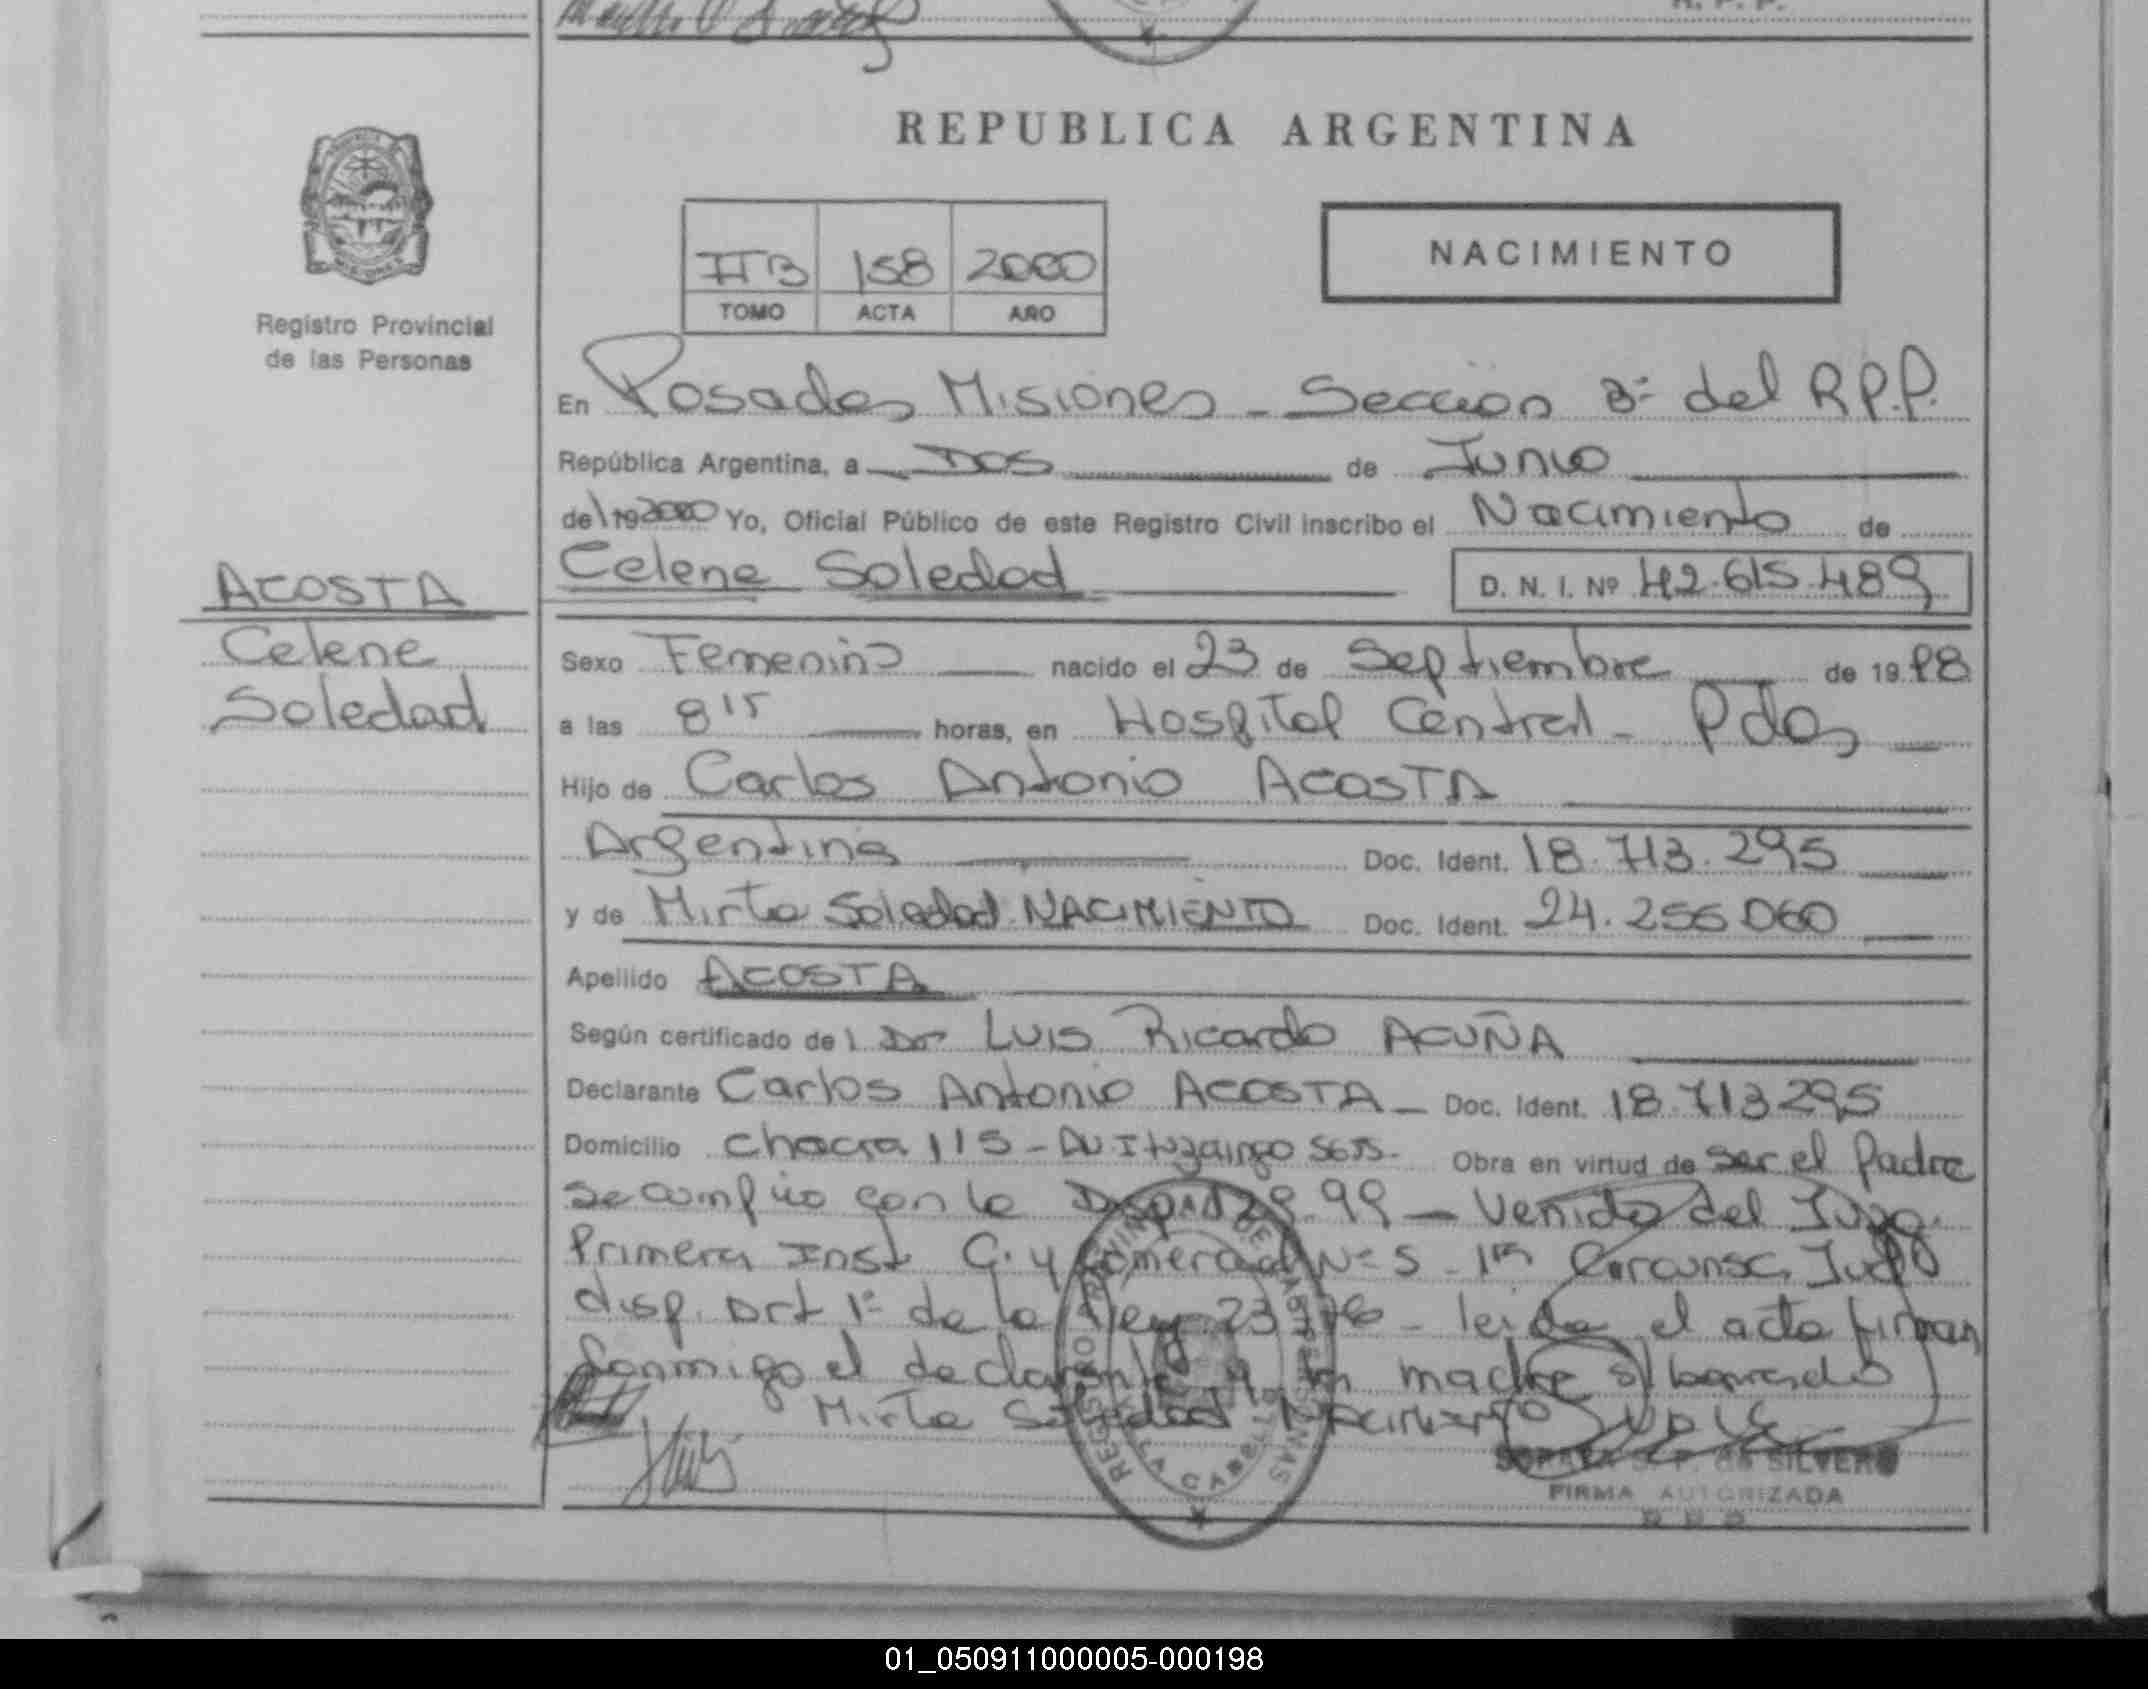 REPUBLICA ARGENTINA
IIB 158 2000
TOMO ACTA AÑO
NACIMIENTO
Registro Provincial
de las Personas
En Posadas Misiones - Sección 3ª del R.P.P.
República Argentina, a Dos de Junio
de 2000 Yo, Oficial Público de este Registro Civil inscribo el Nacimiento de
Celene Soledad D. N. I. Nº 42.615.489
ACOSTA
Celene
Soledad
Sexo Femenino nacido el 23 de Septiembre de 19 98
a las 8 15 horas, en Hospital Central - Pdas
Hijo de Carlos Antonio ACOSTA
Argentina Doc. Ident. 18.713.295
y de Mirta Soledad NACIMIENTO Doc. Ident. 24.256.060
Apellido ACOSTA
Según certificado de l Dr Luis Ricardo ACUÑA
Declarante Carlos Antonio ACOSTA - Doc. Ident. 18.713295
Domicilio chacra 115 - Av Ituzaingo 5655- Obra en virtud de ser el Padre
se cumplio con la 99 - Venido del Juzg.
Primera Inst C. y Comercial Nº 5 - 1ra Circunsc. Jud
disp. Art 1º de la Ley - leida el acta firman
conmigo el declarante y la madre s/ borrado
Mirta Soledad Nacimiento
SILVERO
FIRMA AUTORIZADA
REGISTRO PROVINCIAL DE LAS PERSONAS
01_050911000005-000198